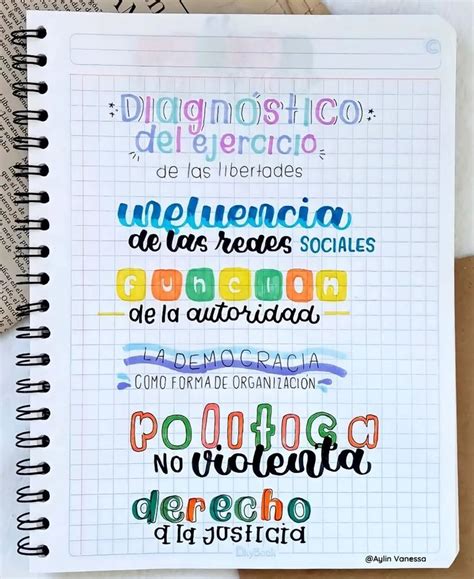 Diagnóstico
del ejercicio
de las libertades
influencia
de las redes SOCIALES
funcion
de la autoridad
LA DEMOCRACIA
COMO FORMA DE ORGANIZACIÓN
politica
NO violenta
derecho
a la justicia
SkyBook
@Aylin Vanessa